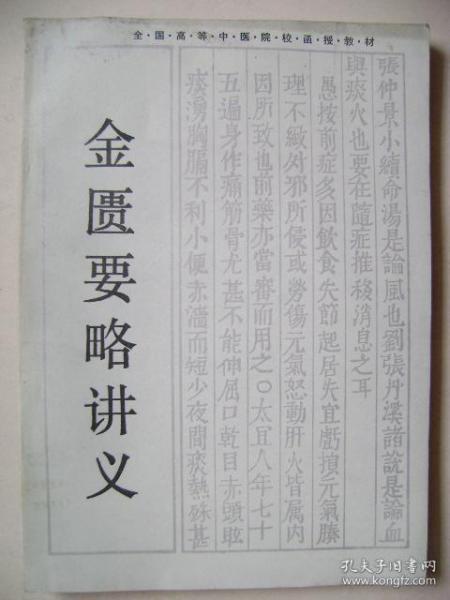 全·国·高·等·中·医·院·校·函·授·教·材
金匮要略讲义
張仲景小續命湯是論風也劉張丹溪諸說是論血
與痰火也要在隨症推移消息之耳
愚按前症多因飲食失節起居失宜虧損元氣腠
理不緻外邪所侵或勞傷元氣怒動肝火皆属内
因所致也前藥亦當審而用之○太宜人年七十
五遍身作痛筋骨尤甚不能伸屈口乾目赤頭眩
痰湧胸膈不利小便赤澀而短少夜間痰熱殊甚
孔夫子旧书网
www.kongfz.com